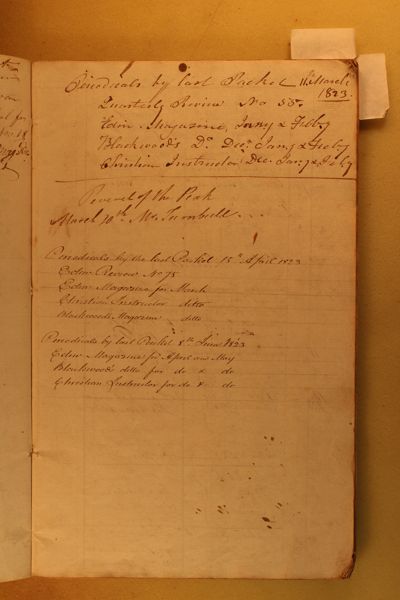 Periodicals by last Packet 11th March
1823.
Quarterly Review No 55.
Edinr. Magazine, Jany & Feby
Blackwood's Do. Decr. Jany & Feby
Christian Instructor Dec. Jany & Feby
Peveril of the Peak
March 10th Mr. Turnbull
Periodicals by the last Packet 15th April 1823
Edinr Review No 75
Edinr Magazine for March
Christian Instructor ditto
Blackwoods Magazine ditto
Periodicals by last Packet 8th June 1823
Edinr Magazines for April and May
Blackwood's ditto for do & do
Christian Instructor for do & do